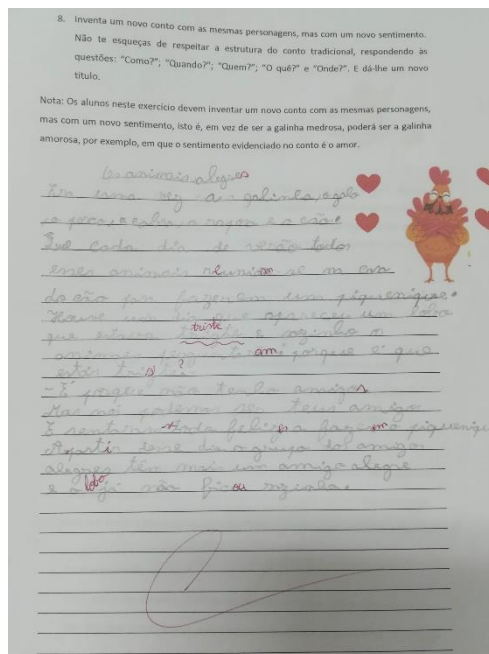 8. Inventa um novo conto com as mesmas personagens, mas com um novo sentimento.
Não te esqueças de respeitar a estrutura do conto tradicional, respondendo às
questões: “Como?”; “Quando?”; “Quem?”; “O quê?” e “Onde?”. E dá-lhe um novo
título.
Nota: Os alunos neste exercício devem inventar um novo conto com as mesmas personagens,
mas com um novo sentimento, isto é, em vez de ser a galinha medrosa, poderá ser a galinha
amorosa, por exemplo, em que o sentimento evidenciado no conto é o amor.
Os animais alegres
Era uma vez a galinha, o galo
o porco, a cabra, a e o cão
Que cada dia de verão todos
esses animais reuniam se
do cão fazerem um piquenique.
um dia que apareceu um lobo
que estava triste e sozinho o
animais am porque é que
estás triste?
- É porque não tenho amigos
Mas nós podemos ser teus amigo
E feliz a piquenique
Apartir desse dia o grupo dos amigos
alegres têm mais um amigo alegre
e o lobo já não ficou